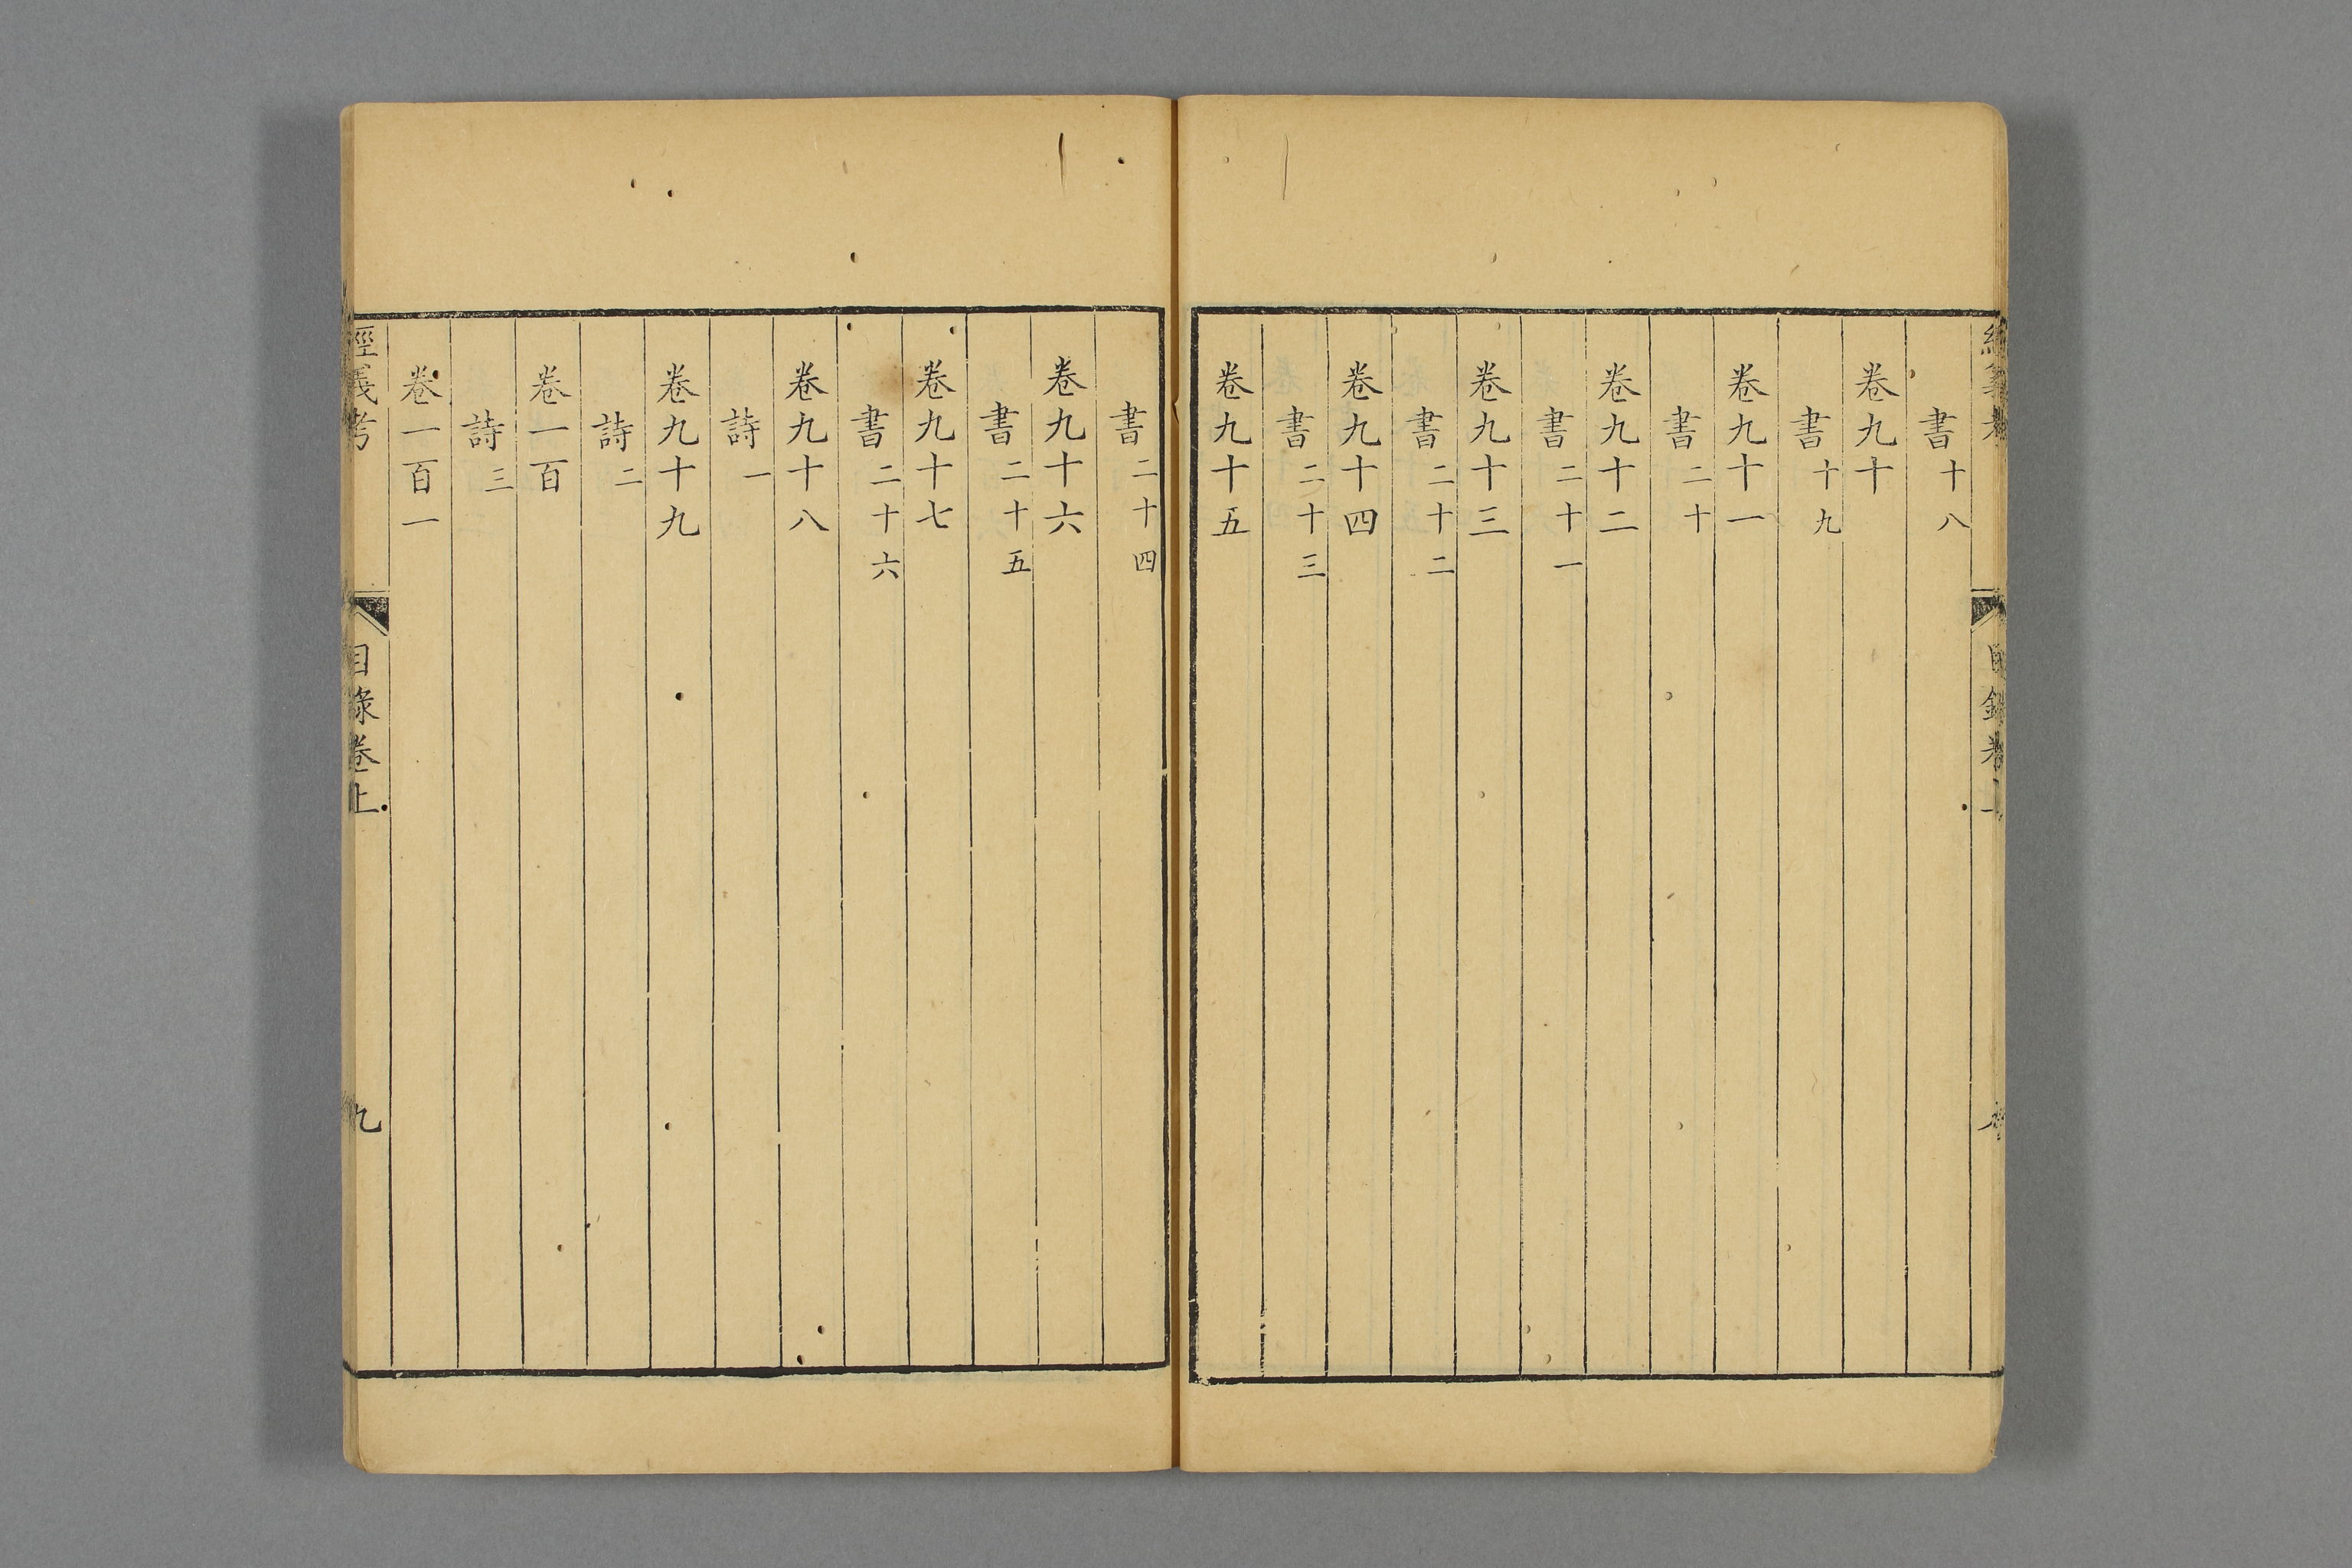 書十八
卷九十
書十九
卷九十一
書二十
卷九十二
書二十一
卷九十三
書二十二
卷九十四
書二十三
卷九十五
書二十四
卷九十六
書二十五
卷九十七
書二十六
卷九十八
詩一
卷九十九
詩二
卷一百
詩三
卷一百一
經義考
目錄卷上
九